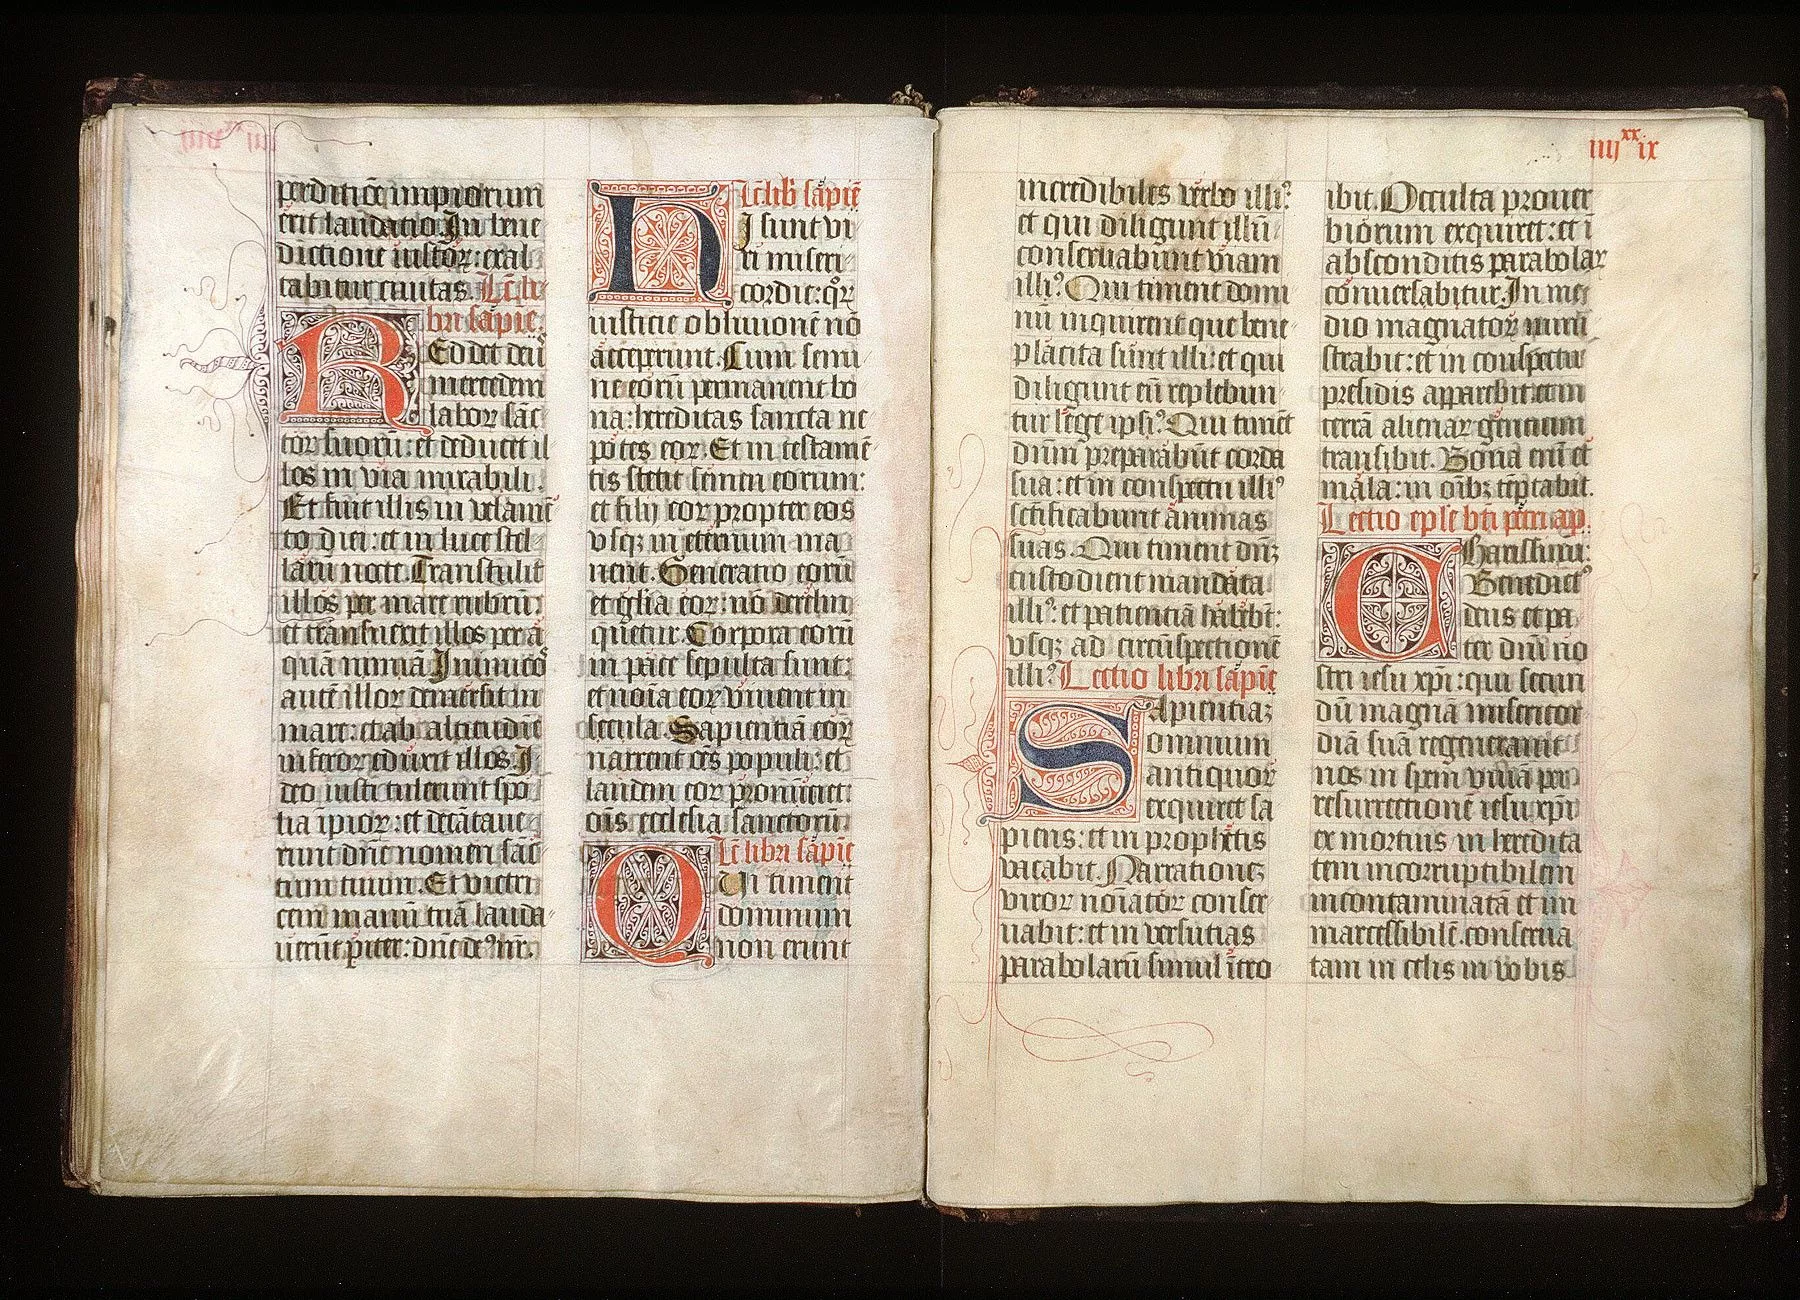 perditiōe impiorum
erit laudatio. In bene
dictione iustoꝝ: exal
tabitur ciuitas. Lc̄ li-
bri sapiē.
REddet deꝰ
mercedem
labor sāc
toꝝ suorū: et deducet il
los in via mirabili.
Et fuit illis in velamē
to diei: et in luce stel-
larū nocte. Transtulit
illos per mare rubrū:
et transuexit illos per a
quā nimiā. Inimicos
autē illoꝝ demersit in
mare: et ab altitudīe
inferoꝝ eduxit illos. I
deo iusti tulerunt spo
lia ipioꝝ: et decātaue-
runt dn̄e nomen sāc-
tum tuum. Et victri
cem manū tuā lauda-
uerūt pariter: dn̄e deꝰ nr̄.
Lc̄ lib̄ sapiē
HI sunt vi
ri miseri-
cordie: qꝝ
iusticie obliuionē nō
acceperunt. Cum semi-
ne eorū permanent bo
na: hereditas sancta ne-
potes eoꝝ. Et in testamē-
tis stetit semen eorum:
et filij eoꝝ propter eos
vsqꝫ in eternum ma-
nent. Generatio eorū
et glīa eoꝝ: nō derelin-
quetur. Corpora eorū
in pace sepulta sunt:
et noīa eoꝝ viuent in
secula. Sapientiā eoꝝ
narrent oēs populi: et
laudem eoꝝ pronūciet
oīs ecclesia sanctorū.
Lc̄ libri sapiē
QUi timent
dominum
non erunt
iiijˣˣix
incredibiles verbo illiꝰ:
et qui diligunt illū
conseruabunt viam
illiꝰ. Qui timent domi
nū inquirent que bene-
placita sunt illi: et qui
diligunt eū replebun-
tur lege ipsiꝰ. Qui timēt
dn̄m preparabūt corda
sua: et in conspectu illiꝰ
sc̄ificabunt animas
suas. Qui timent dn̄ꝫ
custodient mandata
illiꝰ: et patientiā habebt̄:
vsqꝫ ad circūspectionē
illiꝰ. Lectio libri sapiē
SApientiaꝫ
omnium
antiquoꝝ
exquiret sa
piens: et in prophetis
vacabit. Narrationeꝫ
viroꝝ nōiatoꝝ conser-
uabit: et in versutias
parabolarū simul ītro
ibit. Occulta prouer
biorum exquiret: et ī
absconditis parabolaꝝ
conuersabitur. In me-
dio magnatoꝝ mini-
strabit: et in conspectu
presidis apparebit: in
terrā alienaꝝ gentium
transibit. Bona eni et
mala: in oībꝫ tēptabit.
Lectio ep̄le bt̄i petri ap̄.
CHarissimi:
Benedictꝰ
deus et pa-
ter dn̄i no
stri iesu xp̄i: qui secun
dū magnā misericor
diā suā regenerauit
nos in spem viuā per
resurrectionē iesu xp̄i
ex mortuis in heredita
tem incorruptibilem
incontaminatā et im
marcessibilē. conserua
tam in celis in vobis